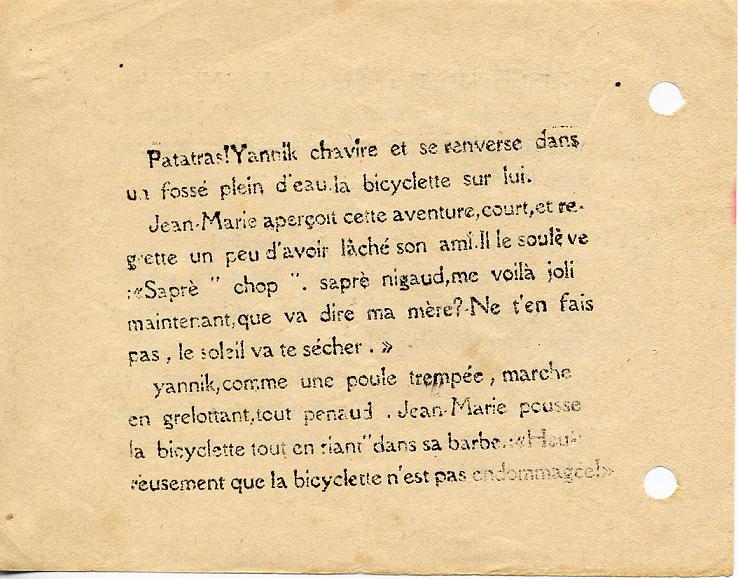 Patatras!Yannik chavire et se renverse dans
un fossé plein d'eau.la bicyclette sur lui.
Jean-Marie aperçoit cette aventure,court,et re-
grette un peu d'avoir lâché son ami.Il le soulève
:«Saprè " chop ". saprè nigaud,me voilà joli
maintenant,que va dire ma mère?-Ne t'en fais
pas , le soleil va te sécher . »
yannik,comme une poule trempée , marche
en grelottant,tout penaud . Jean-Marie pousse
la bicyclette tout en riant"dans sa barbe.:«Heu-
reusement que la bicyclette n'est pas endommagée!»